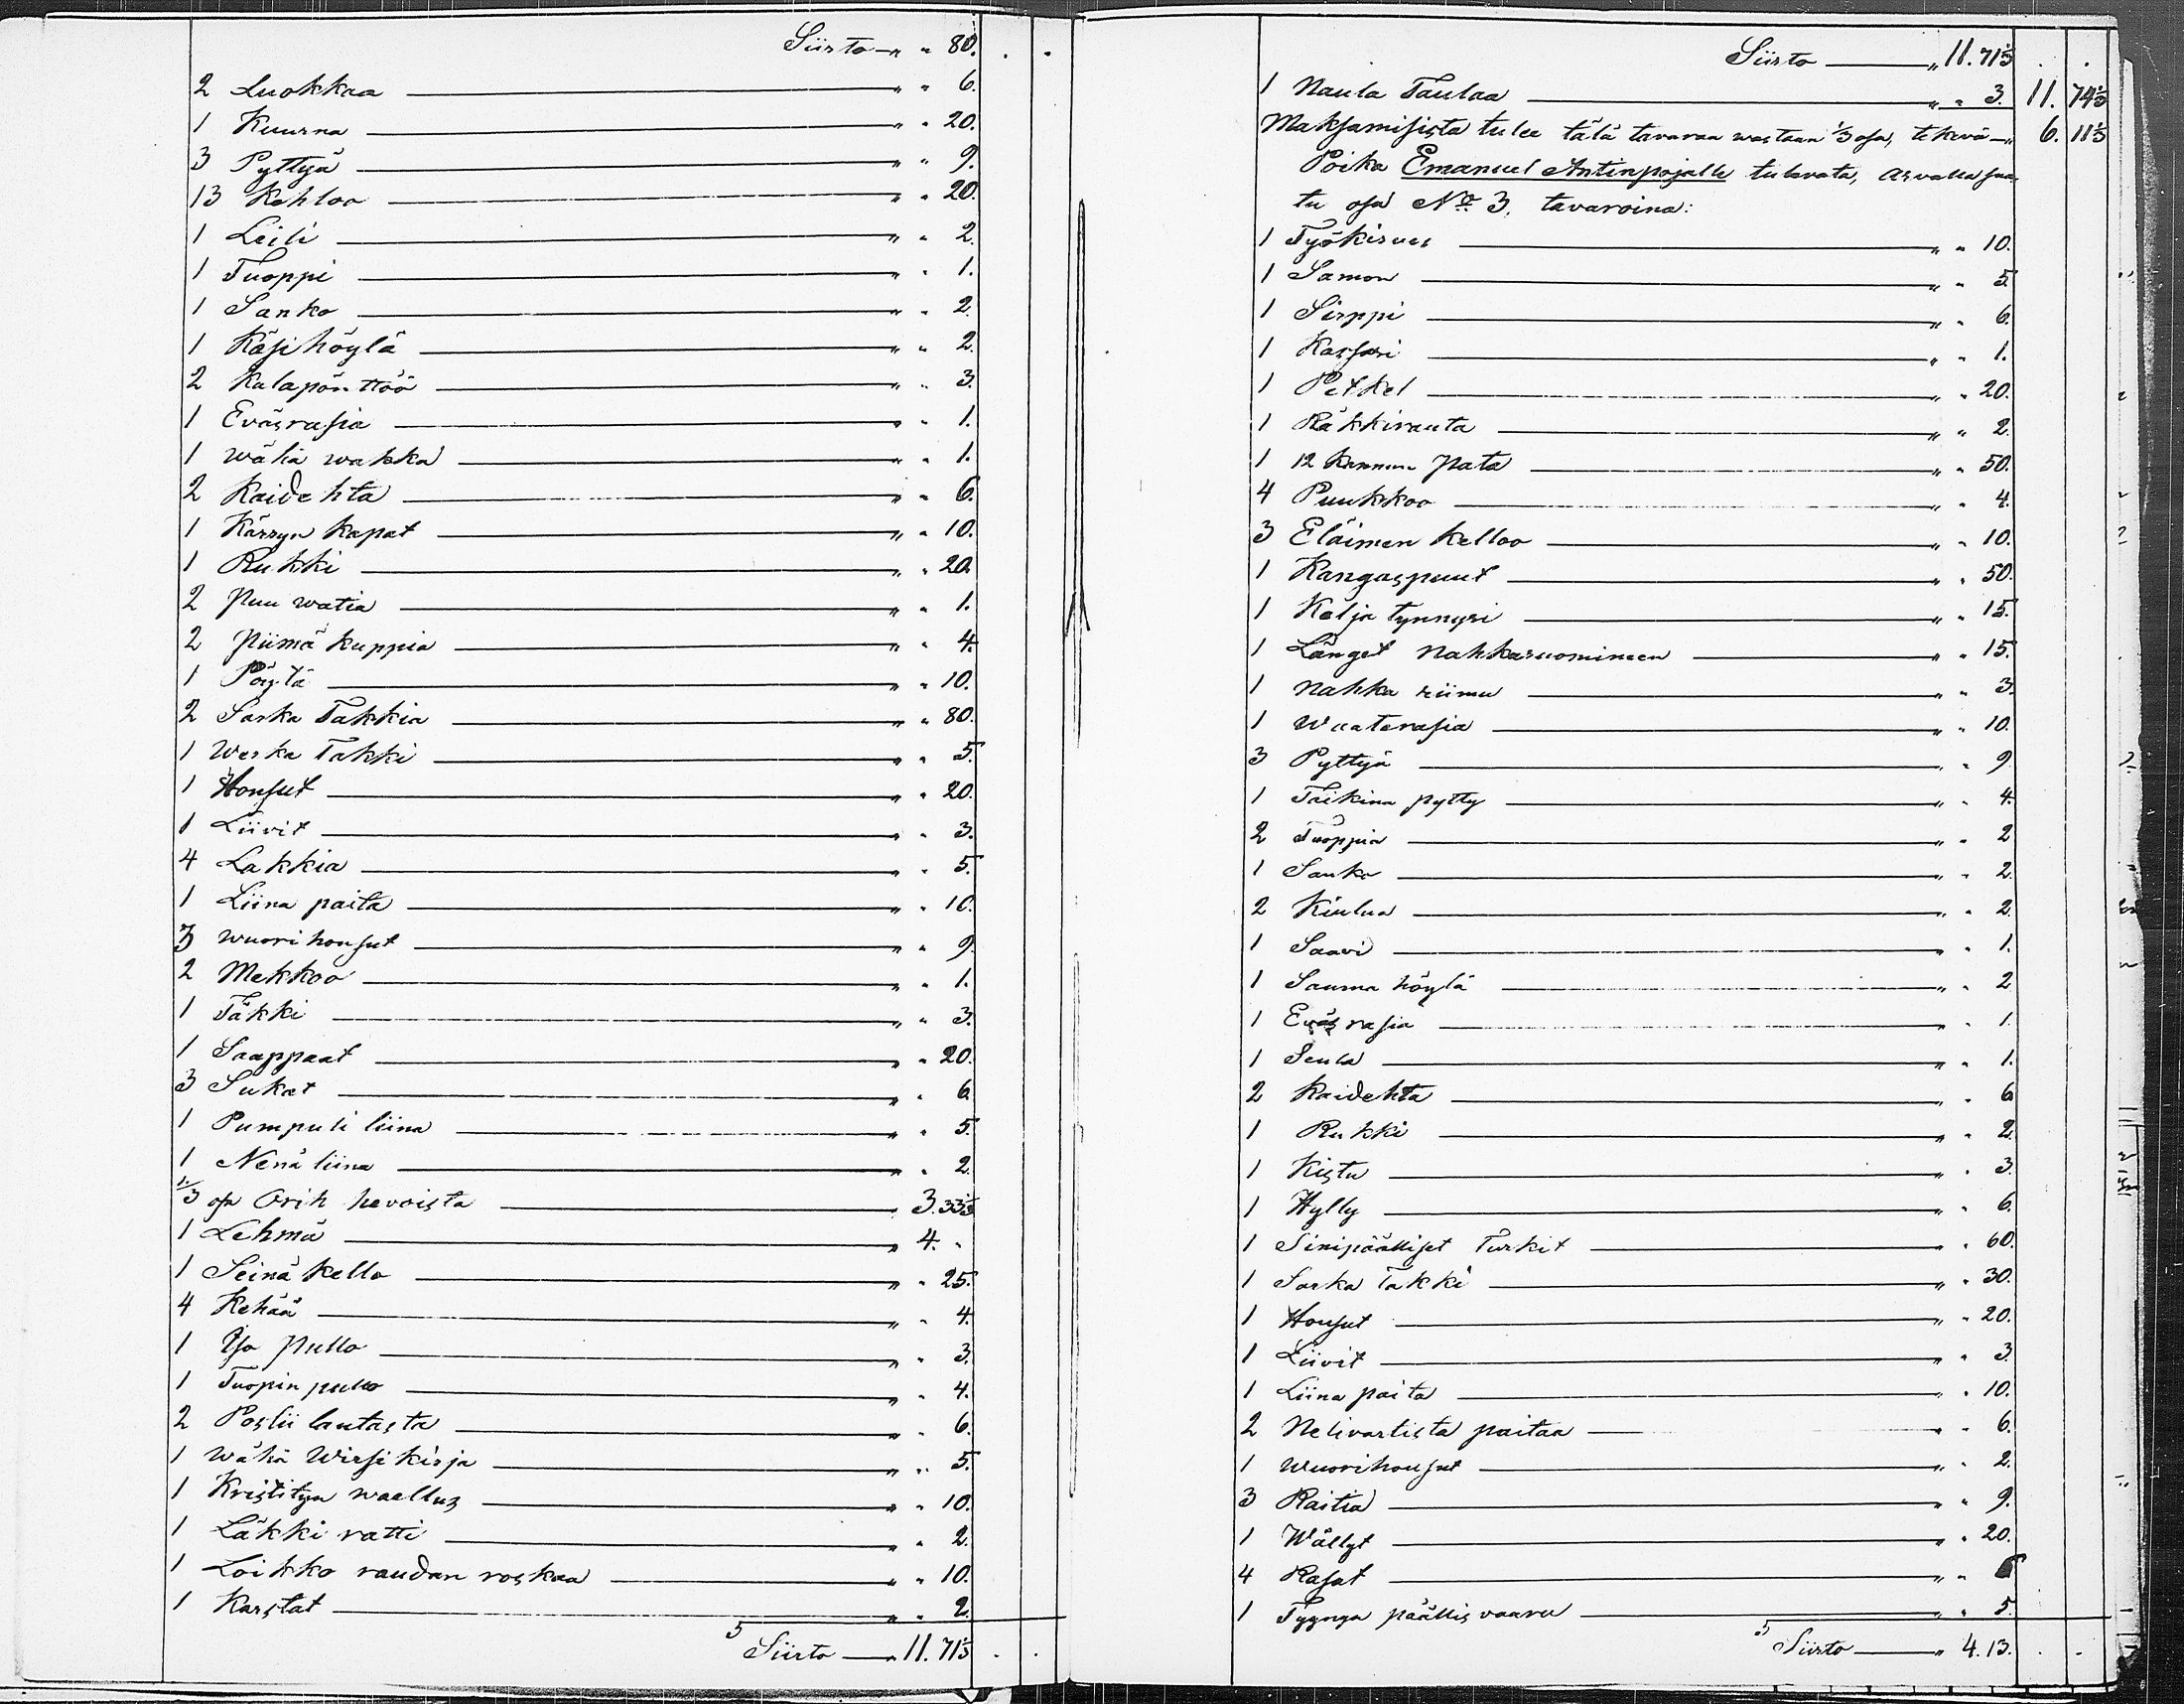 Siirto — „ „ 80.
2 Luokkaa — „ „ 6.
1 Kuurna — „ „ 20.
3 Pyttyä — „ „ 9.
13 Kehloo — „ „ 20.
1 Leili — „ „ 2.
1 Tuoppi — „ „ 1.
1 Sanko — „ „ 2.
1 Käsihöylä — „ „ 2.
2 Kalapönttöö — „ „ 3.
1 Eväsrasia — „ „ 1.
1 wähä wakka — „ „ 1.
2 Kaidehta — „ „ 6.
1 Kärryn kapat — „ „ 10.
1 Rukki — „ „ 20.
2 puu watia — „ „ 1.
2 piimä kuppia — „ „ 4.
1 Pöytä — „ „ 10.
2 Sarka Takkia — „ „ 80.
1 Werka Takki — „ „ 5.
1 Housut — „ „ 20.
1 Liivit — „ „ 3.
4 Lakkia — „ „ 5.
1 Liina paita — „ „ 10.
3 wuorihousut — „ „ 9.
2 Mekkoo — „ „ 1.
1 Täkki — „ „ 3.
1 Saappaat — „ „ 20.
3 Sukat — „ „ 6
1 Pumpuli liina — „ „ 5.
1 Nenä liina — „ „ 2.
1/3 osa Orih hevoista — 3. 33 1/3
1 Lehmä — „ 4. „
1 Seinä kello — „ „ 25.
4 Kehää — „ „ 4.
1 Iso pullo — „ „ 3.
1 Tuopin pullo — „ „ 4.
2 Poslii lautasta — „ „ 6.
1 wähä Wirsi kirja — „ „ 5.
1 Kristityn waellus — „ „ 10.
1 Läkki ratti — „ „ 2.
1 Loikko raudan roskaa — „ „ 10.
1 Karstat — „ „ 2.
5 Siirto — „ 11. 71 1/3
Siirto — „ 11. 71 1/3
1 Naula Taulaa — „ „ 3. 11. 74 1/3
Maksamisista tulee tätä tavaraa wastaan 1/3 osa, tekevä — „ 6. 11 1/3
Poika Emanuel Antinpojalle tulevata, arvalla saa-
tu osa No 3, tavaroina:
1 Työkirves — „ „ 10.
1 Samon — „ „ 5
1 Sirppi — „ „ 6.
1 Kassari — „ „ 1.
1 Petkel — „ „ 20.
1 Räkkirauta — „ „ 2.
1 12 kannun pata — „ „ 50.
4 Puukkoo — „ „ 4.
3 Eläimen kelloo — „ „ 10.
1 Kangaspuut — „ „ 50.
1 Kalja tynnyri — „ „ 15.
1 Länget nahkaruomineen — „ „ 15.
1 nahka riimu — „ „ 3.
1 Waaterasia — „ „ 10.
3 Pyttyä — „ „ 9
1 Taikina pytty — „ „ 4.
2 Tuoppia — „ „ 2
1 Sanko — „ „ 2.
2 Kiulua — „ „ 2.
1 Saavi — „ „ 1.
1 Sauma höylä — „ „ 2
1 Eväsrasia — „ „ 1.
1 Seula — „ „ 1.
2 Kaidehta — „ „ 6
1 Rukki — „ „ 2.
1 Kistu — „ „ 3.
1 Hylly — „ „ 6.
1 Sinipäälliset Turkit — „ „ 60.
1 Sarka Takki — „ „ 30.
1 Housut — „ „ 20.
1 Liivit — „ „ 3.
1 Liina paita — „ „ 10.
2 Nelivartista paitaa — „ „ 6.
1 Wuorihousut — „ „ 2.
3 Raitia — „ „ 9.
1 Wällyt — „ „ 20.
4 Rasat — „ „
1 päällis vaaru — „ „ 5.
5 Siirto — „ 4. 13.